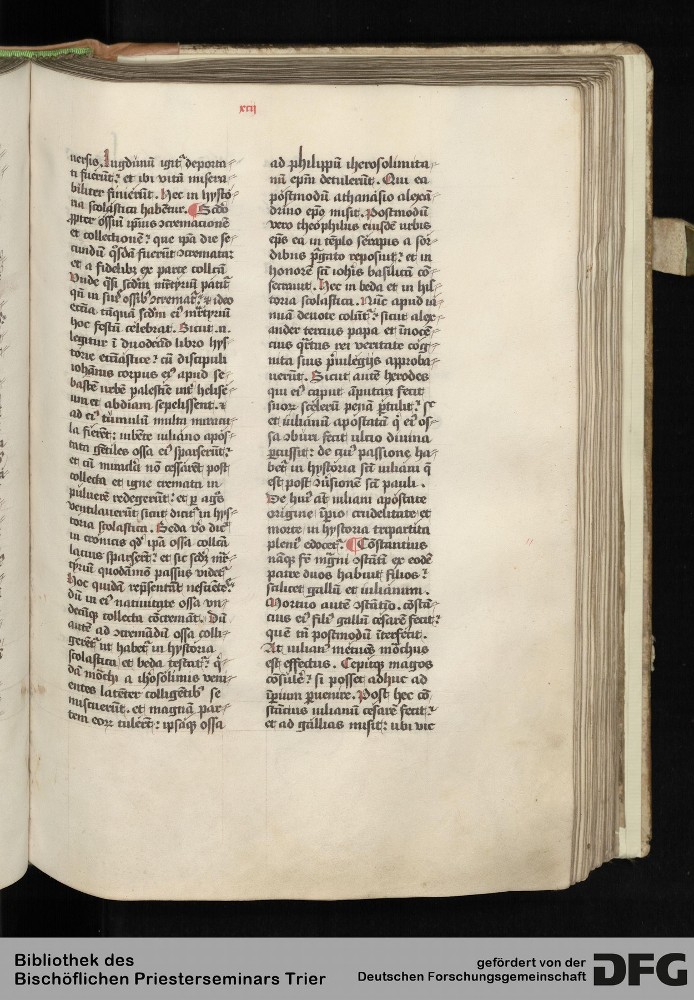 xcij
uersis. lugdunū igit᷑ deporta⸗
ti fuerūt: et ibi vitā misera⸗
biliter finierūt. Hec in hysto⸗
ria scolastica habētur. ¶ Scd̄o
ꝓpter ossiū ip̄ius ↄcremacionē
et collectionē: que ip̄a die se⸗
cundū qͦsdā fuerūt ↄcremata:
et a fidelibꝫ ex parte collcā.
Unde qͣsi scd̄m mr̄tyriū patit᷑
qn̄ in suis ossibꝰ ↄcremat᷑: ideo
eccīa tāquā scd̄m eiꝰ mr̄tyriū
hoc festū celebrat. Sicut .n.
legitur ī duodecīo libro hys⸗
torie eccīastice: cū discipuli
iohānis corpus eiꝰ apud se⸗
bastē urbē palestīe int᷑ helise⸗
um et abdiam sepelissent.
ad eiꝰ tumulū multa miracu⸗
la fierēt: iubēte iuliano apos⸗
tata gētiles ossa eiꝰ sparserūt:
et cū miracl̄a nō cessarēt post
collecta et igne cremata in
puluerē redegerūt: et ꝑ agͦs
ventilauerūt sicut dicit᷑ in hys⸗
toria scolastica. Beda vͦo dic̄
in cronicis qͥ ip̄a ossa collcā
lacius sparserūt: et sic scd̄m mr̄⸗
tyriū quodāmō passus videt᷑.
Hoc quidā rep̄sentāt nesciēt:
dū in eiꝰ natiuitate ossa vn⸗
decūqꝫ collecta cōcremāt. Dū
autē ad ↄcremādū ossa colli⸗
gerēt᷑ ut habet᷑ in hystoria
scolastica et beda testat᷑: qͥ⸗
dā mōchi a ih̄osolimis veni⸗
entes latēter colligētibꝰ se
miscuerūt. et magnā par⸗
tem eoꝝ tulerēt: ipsāqꝫ ossa
ad philippū iherosolimita⸗
nū ep̄m detulerūt. Qui ea
postmodū athanasio alexā⸗
drino ep̄o misit. Postmodū
vero theophilus eiusdē urbis
ep̄s ea in tēplo serapis a sor⸗
dibus pͬgato reposuit: et in
honorē scī ioh̄is basilicā cō⸗
secrauit. Hec in beda et in his⸗
toria scolastica. Nūc apud ia⸗
nuā deuote colūt᷑: sicut alex⸗
ander tercius papa et innocē⸗
cius qͣrtus rei veritate cog⸗
nita suis pͥuilegijs approba⸗
uerūt. Sicut autē herodes
qui eiꝰ caput āputari fecit
suoꝝ sceleꝝ penā ꝑtulit: sc̄
et iulianū apostatā qͥ eiꝰ os⸗
sa ↄburi fecit ulcio diuina
ꝑcussit: de cuiꝰ passione ha⸗
bet᷑ in hystoria scī iuliani q̄
est post ↄuersionē scī pauli.
De huiꝰ aūt iuliani apostate
origine īpͥo crudelitate et
morte in hystoria tripartita
pleniꝰ edocet᷑. ¶ Cōstantius
nāqꝫ fr̄ mgͣni ↄstātī ex eodē
patre duos habuit filios:
scilicet gallū et iulianum.
Mortuo autē ↄstātio. cōstā⸗
cius eiꝰ filiꝰ gallū cesarē fecit:
quē tn̄ postmodū īterfecit.
At iulianꝰ metuēs mōchus
est effectus. Cepitqꝫ magos
cōsulē: si posset adhuc ad
īpͥum ꝑuenire. Post hec cō⸗
stācius iulianū cesarē fecit:
et ad gallias misit: ubi vic
Bibliothek des
Bischöflichen Priesterseminars Trier
gefördert von der
Deutschen Forschungsgemeinschaft
DFG